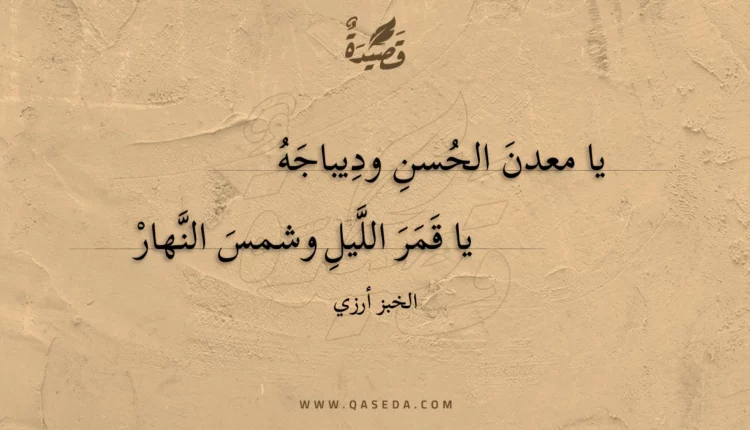 قَصِيدَةٌ
يا معدنَ الحُسنِ ودِيباجَهُ
يا قَمَرَ اللَّيلِ وشمسَ النَّهارْ
الخبز أرزي
WWW.QASEDA.COM